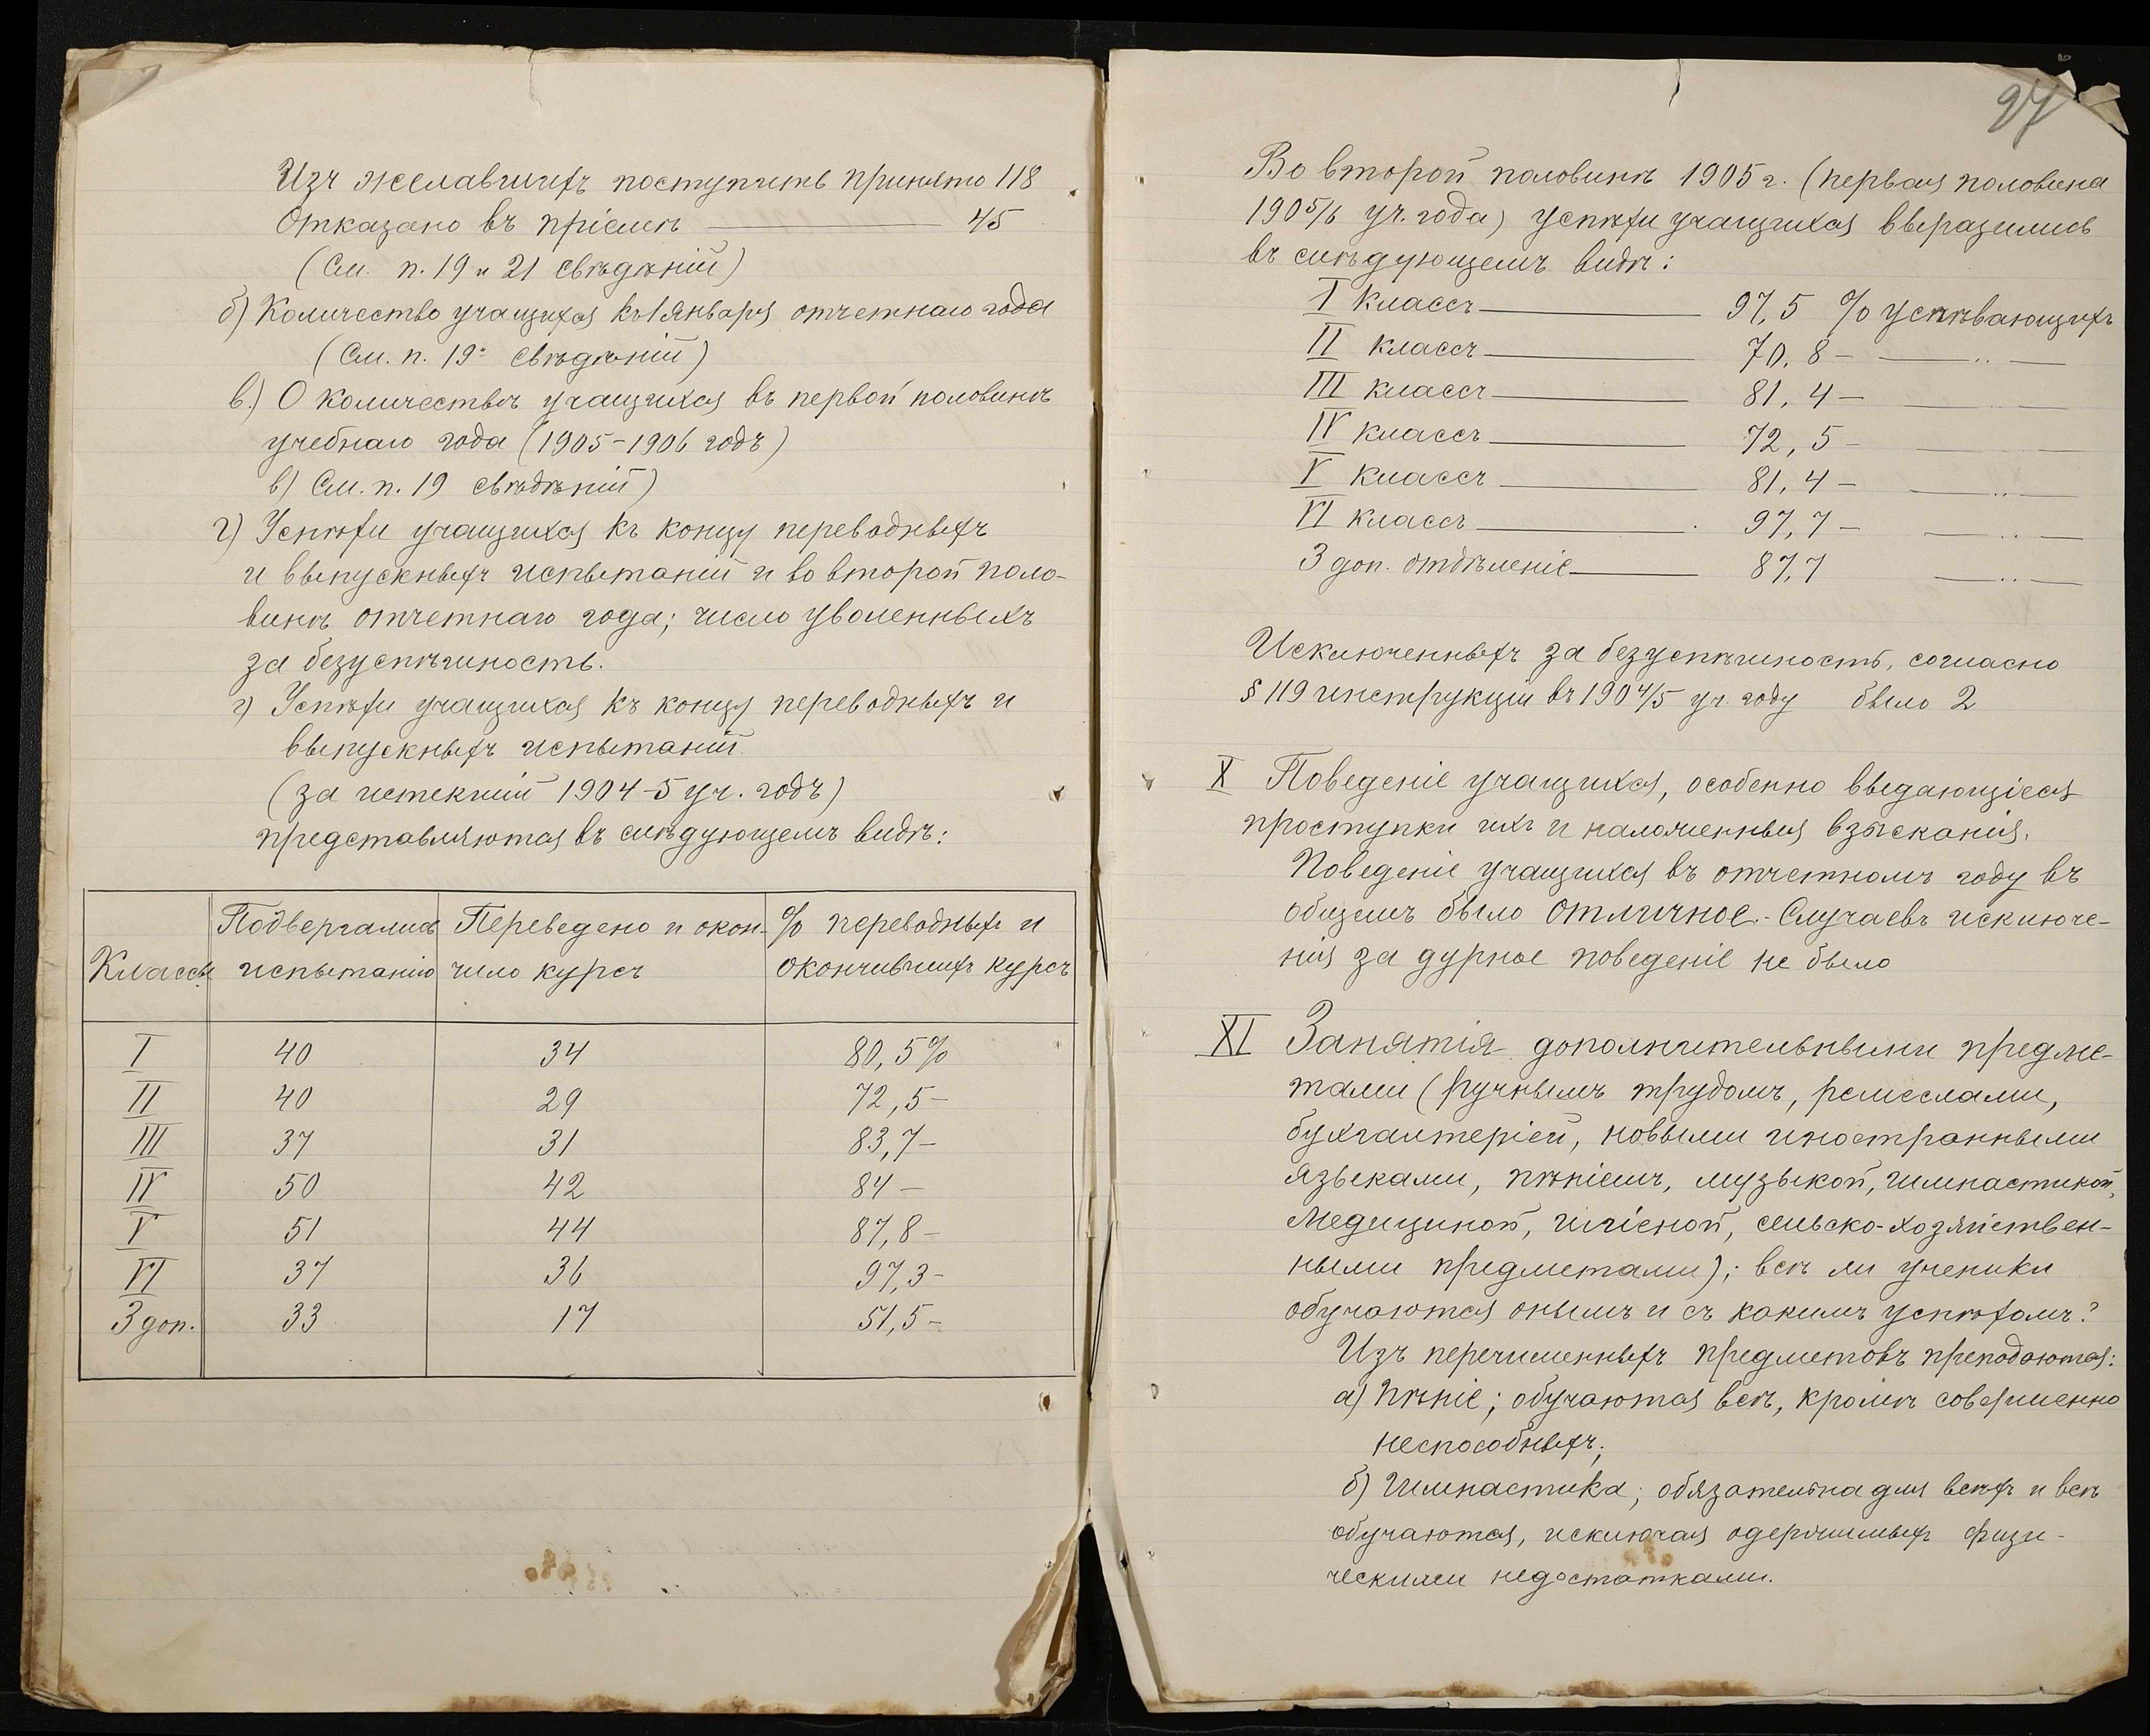 Изъ желавшихъ поступить принято 118
Отказано въ пріемѣ —— 45
(См. п. 19 и 21 свѣдѣній)
б) Количество учащихся къ 1 января отчетнаго года
(См. п. 19 свѣдѣній)
в.) О количествѣ учащихся въ первой половинѣ
учебнаго года (1905-1906 годъ)
в) См. п. 19 свѣдѣній)
г) Успѣхи учащихся къ концу переводныхъ
и выпускныхъ испытаній и во второй поло-
винѣ отчетнаго года; число уволенныхъ
за безуспѣшность.
г) Успѣхи учащихся къ концу переводныхъ и
выпускныхъ испытаній
(за истекшій 1904-5 уч. годъ)
представляются въ слѣдующемъ видѣ:
Классы Подвергались испытанію Переведено и окон-чило курсъ % переводныхъ и окончившихъ курсъ
I 40 34 80,5%
II 40 29 72,5-
III 37 31 83,7-
IV 50 42 84-
V 51 44 87,8-
VI 37 36 97,3-
3 доп. 33 17 51,5-
97
Во второй половинѣ 1905 г. (первая половина
1905/6 уч. года) успѣхи учащихся выразились
въ слѣдующемъ видѣ:
I классъ — 97,5 % успѣвающихъ
II классъ — 70,8 - — „ —
III классъ — 81,4 - — „ —
IV классъ — 72,5 - — „ —
V классъ — 81,4 - — „ —
VI классъ — 97,7 - — „ —
3 доп. отдѣленіе — 87,7 — „ —
Исключенныхъ за безуспѣшность, согласно
§ 119 инструкціи въ 1904/5 уч. году было 2
X Поведеніе учащихся, особенно выдающіеся
проступки ихъ и наложенныя взысканія.
Поведеніе учащихся въ отчетномъ году въ
общемъ было отличное. Случаевъ исключе-
нія за дурное поведеніе не было
XI Занятія дополнительными предме-
тами (ручнымъ трудомъ, ремеслами,
бухгалтеріей, новыми иностранными
языками, пѣніемъ, музыкой, гимнастикой,
медициной, гигіеной, сельско-хозяйствен-
ными предметами); всѣ ли ученики
обучаются онымъ и съ какимъ успѣхомъ?
Изъ перечисленныхъ предметовъ преподаются:
а) Пѣніе; обучаются всѣ, кромѣ совершенно
неспособныхъ;
б) Гимнастика; обязательна для всѣхъ и всѣ
обучаются, исключая одержимыхъ физи-
ческими недостатками.